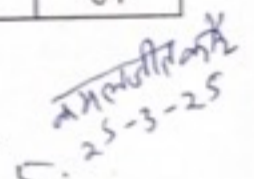 कमलजीत कौर
25-3-25